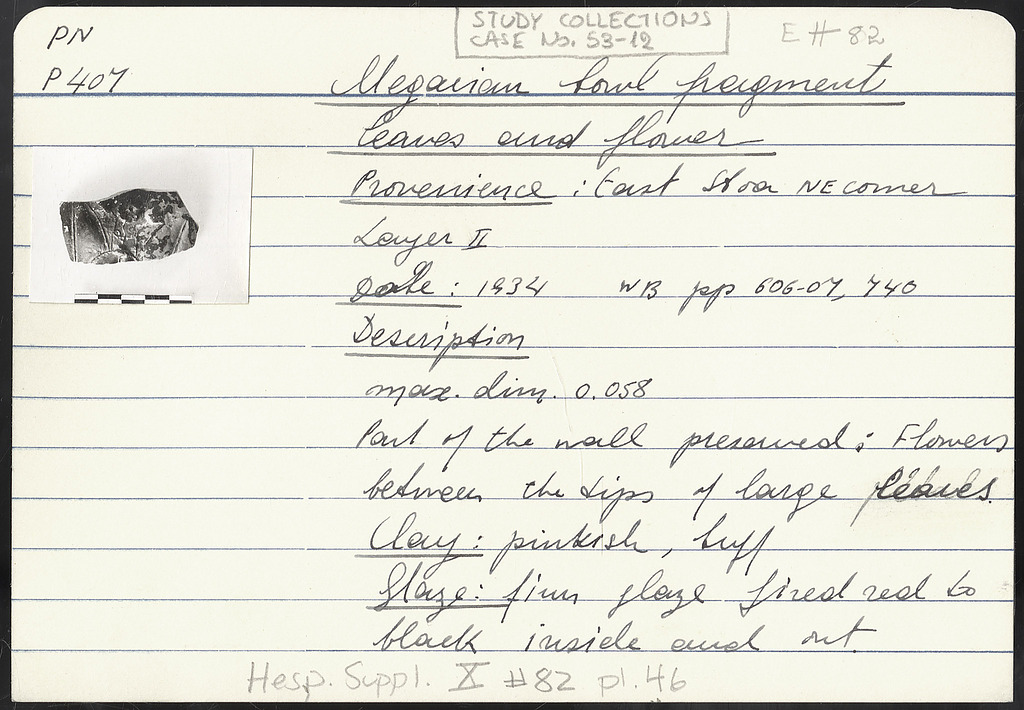 PN
P 407
STUDY COLLECTIONS
CASE No. 53-12
E # 82
Megarian bowl fragment
Leaves and flower
Provenience : East Stoa NE corner
Layer II
Date : 1934 WB pp 606-07, 740
Description
max. dim. 0.058
Part of the wall preserved : Flowers
between the tips of large leaves.
Clay : pinkish, buff
Glaze : firm glaze fired red to
black inside and out.
Hesp. Suppl. X #82 pl. 46